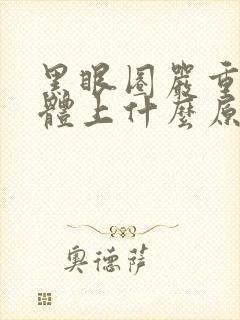 黑眼圈嚴重
體上什麼原
奧德薩